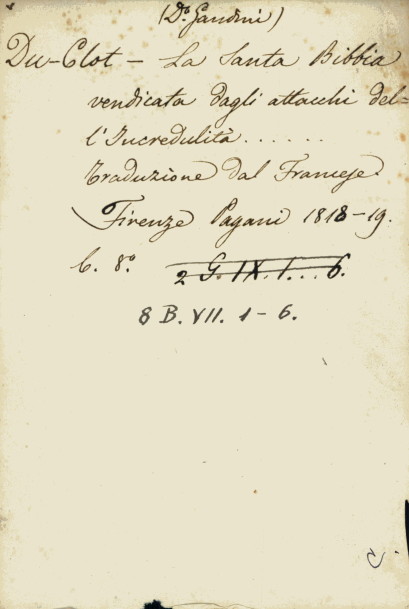 (D.º Gandini)
Du-Clot — La Santa Bibbia
vendicata dagli attacchi del=
l'Incredulità . . . . . .
Traduzione dal Francese.
Firenze Pagani 1818-19.
6. 8.º 2 G. IX. 1. . . 6.
8 B. VII. 1 - 6.